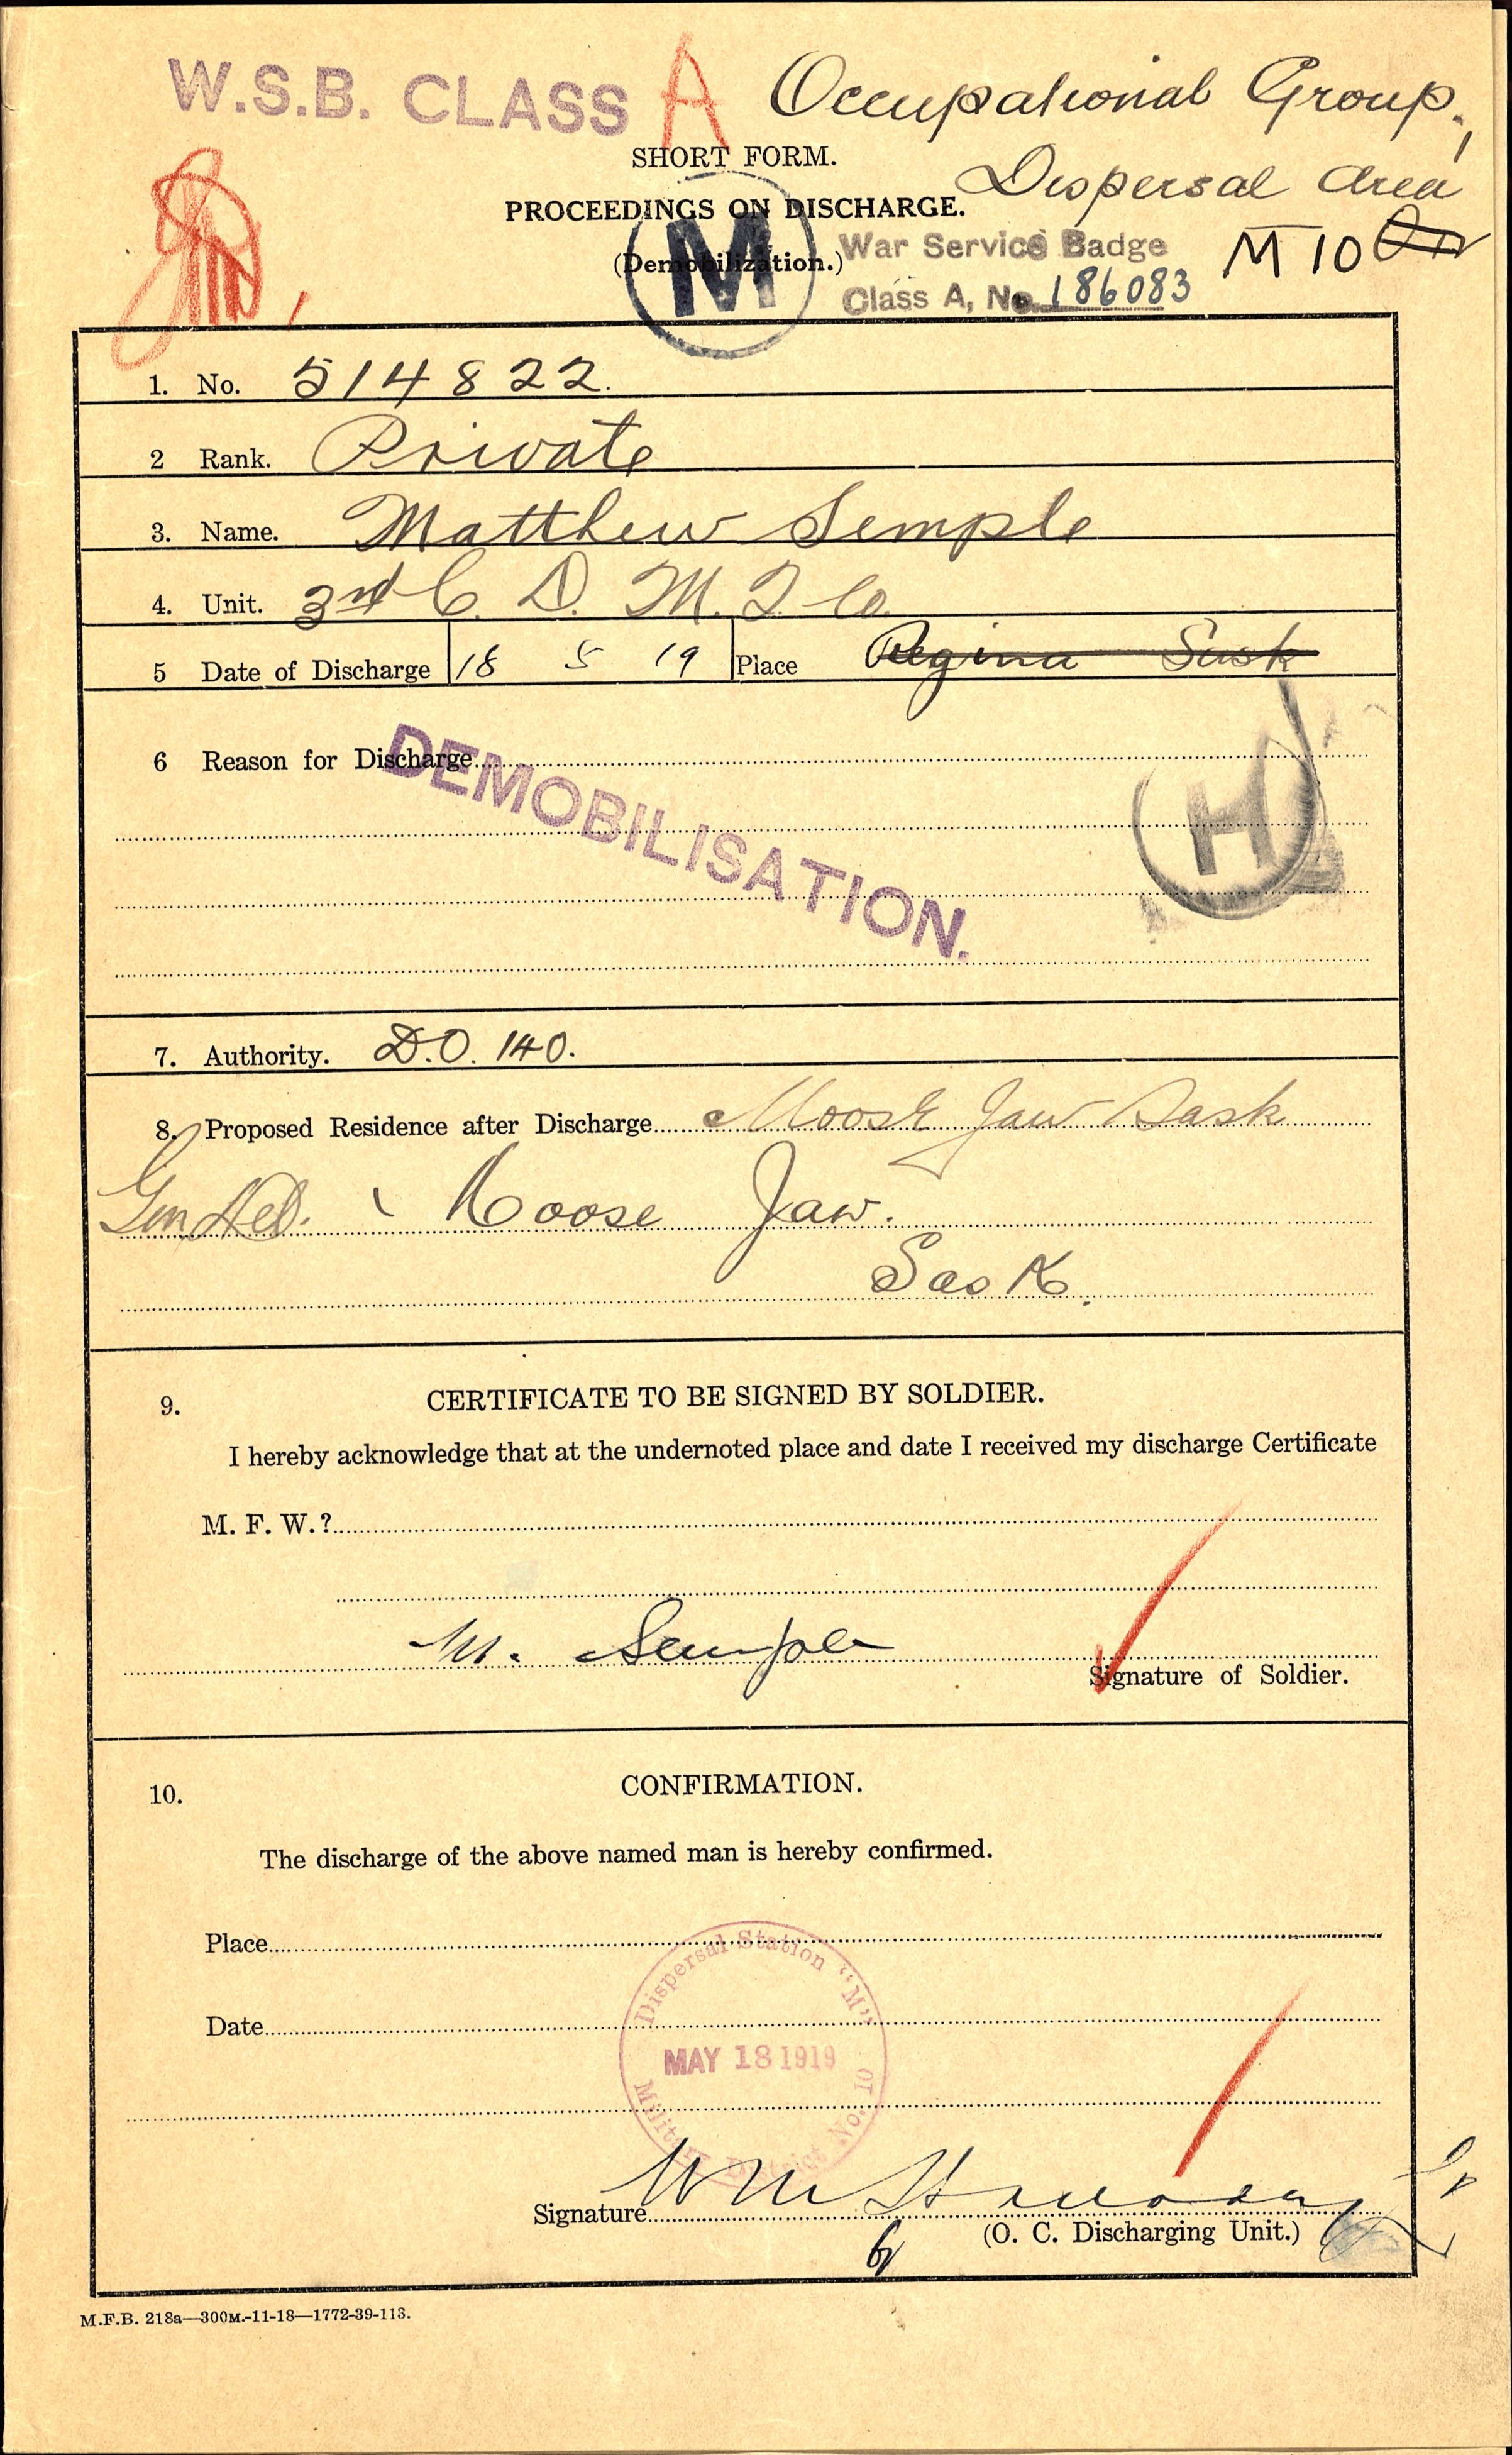 W.S.B. CLASS A Occupational Group.
SHORT FORM.
Dispersal Area
PROCEEDINGS ON DISCHARGE.
(Demobilization.)
M
War Service Badge
M 10
Class A, No. 186083
1. No. 514822.
2 Rank. Private
3. Name. Matthew Semple
4. Unit. 3rd C. D. M. T. Co.
5 Date of Discharge 18 5 19 Place Regina Sask
6 Reason for Discharge
DEMOBILISATION.
H
7. Authority. D.O. 140.
8. Proposed Residence after Discharge Moose Jaw Sask
Gen Del. Moose Jaw.
Sask.
9. CERTIFICATE TO BE SIGNED BY SOLDIER.
I hereby acknowledge that at the undernoted place and date I received my discharge Certificate
M. F. W.?
M. Semple
Signature of Soldier.
10. CONFIRMATION.
The discharge of the above named man is hereby confirmed.
Place
Dispersal Station "M"
Date
MAY 18 1919
Military District No. 10
Signature Wm
(O. C. Discharging Unit.)
M.F.B. 218a—300M.-11-18—1772-39-113.